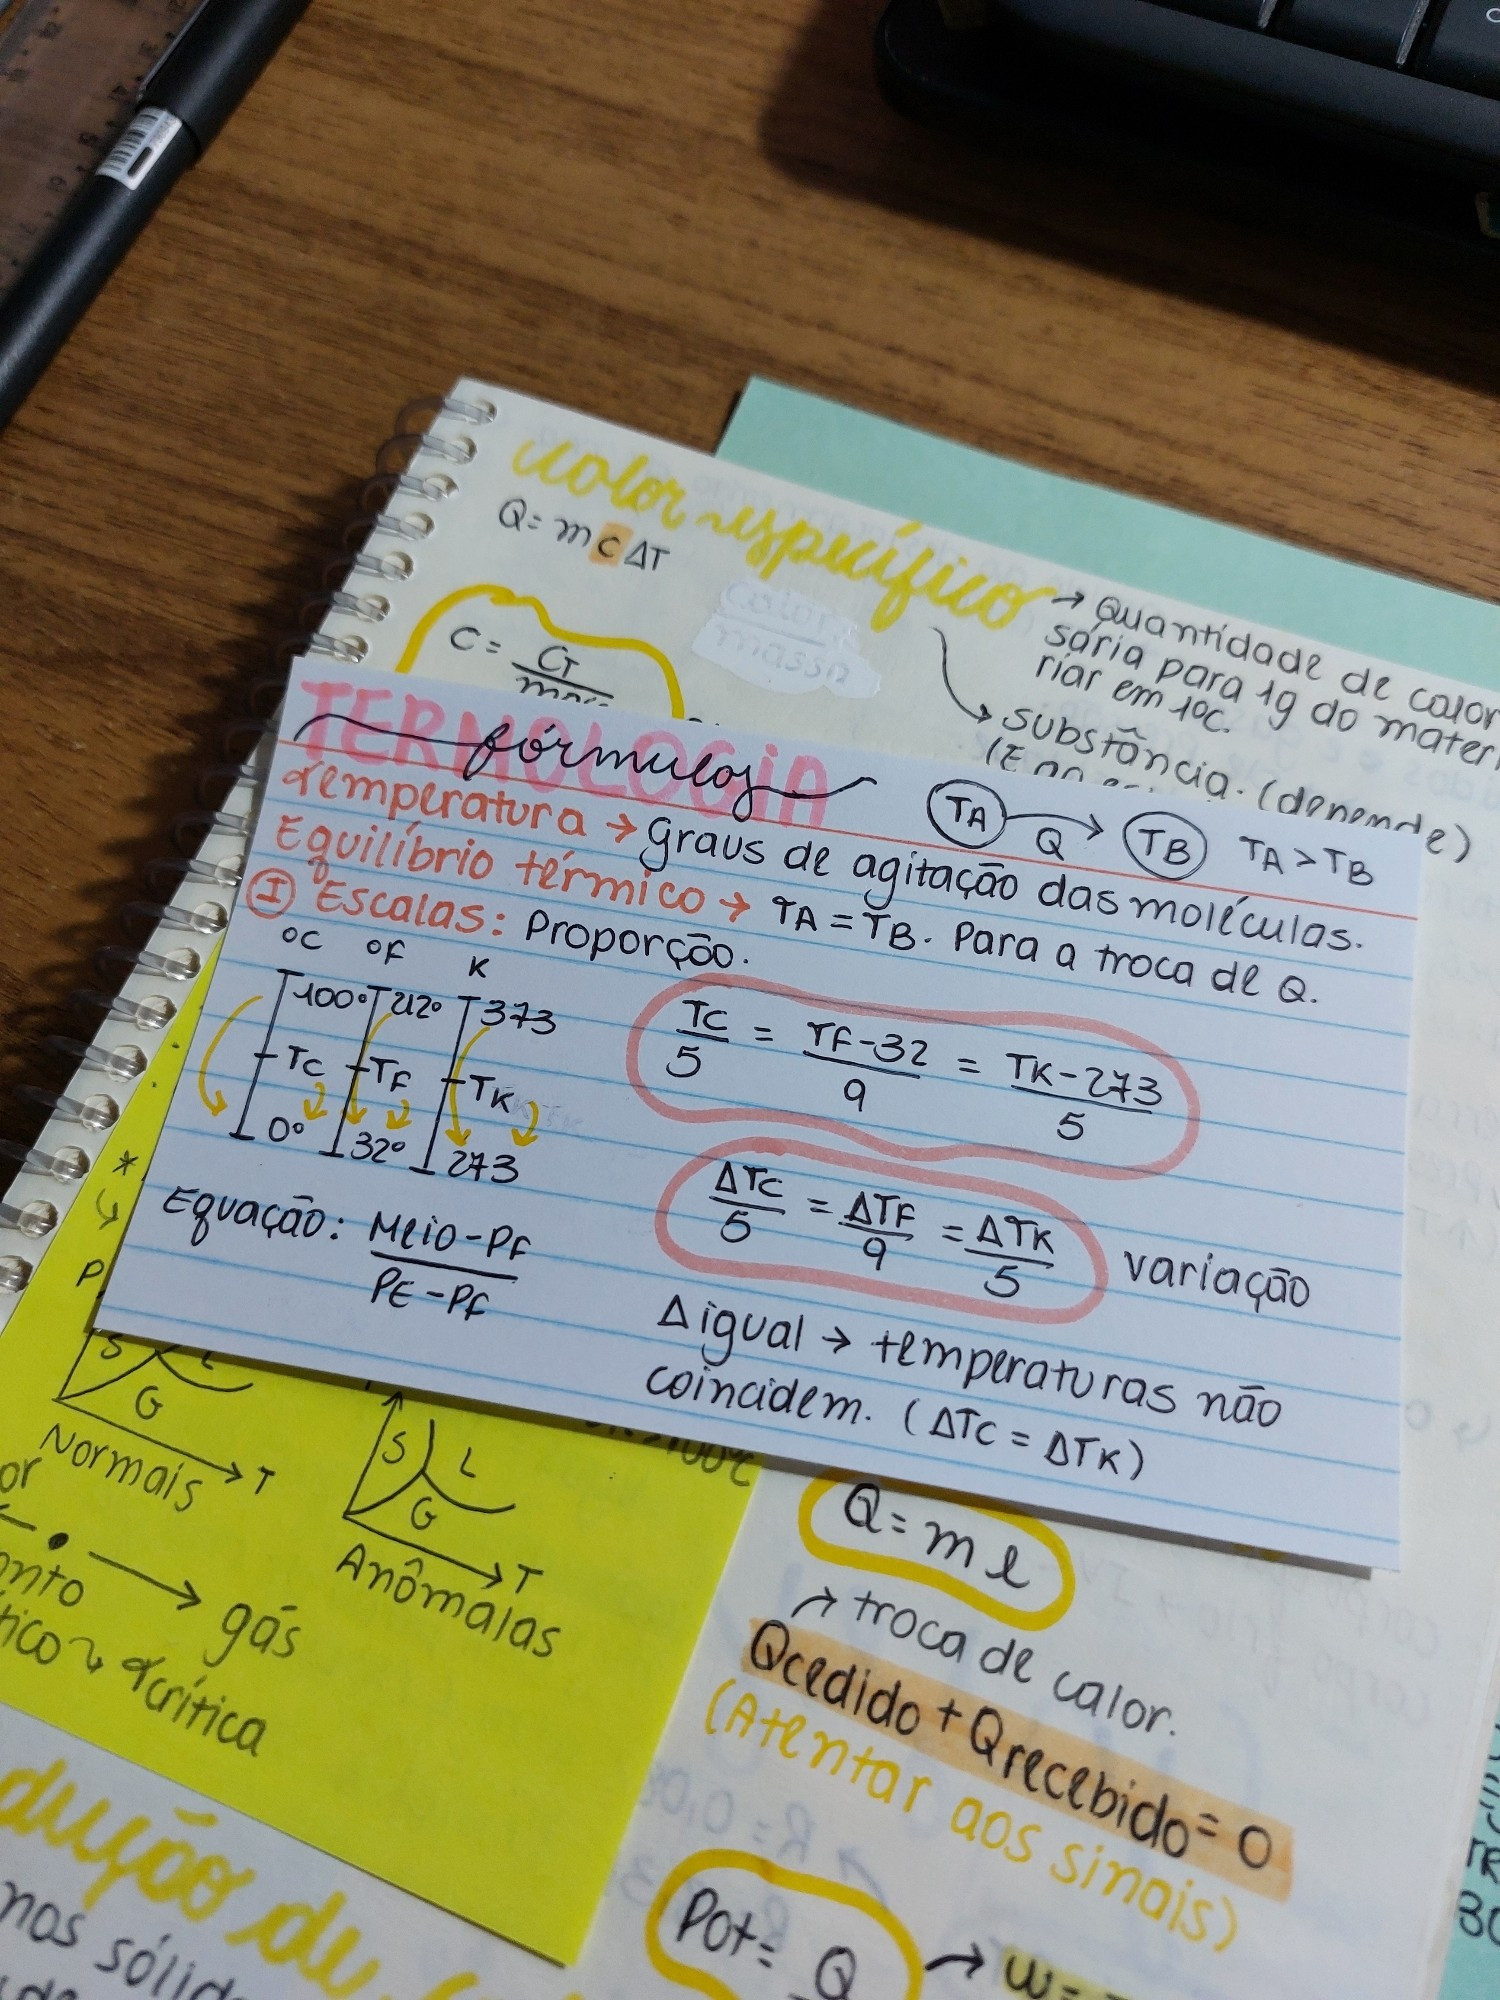 calor específico
Q = m c ΔT
C = CT / massa
calor / massa
→ Quantidade de calor
sária para 1g do mater
riar em 1°C.
→ substância. (depende)
TERMOLOGIA
fórmulas
TA → TB TA > TB
Q
Temperatura → graus de agitação das moléculas.
Equilíbrio térmico → TA = TB. Para a troca de Q.
I Escalas: Proporção.
°C °F K
100° 212° 373
TC TF TK
0° 32° 273
TC/5 = TF-32/9 = TK-273/5
ΔTC/5 = ΔTF/9 = ΔTK/5 variação
Equação: Meio-PF / PE-PF
Δ igual → temperaturas não
coincidem. (ΔTC = ΔTK)
*
P
S L
G
T
Normais
S L
G
T
Anômalas
or
onto → gás
tico Tcrítica
Q = m l
→ troca de calor.
Qcedido + Qrecebido = 0
(Atentar aos sinais)
Pot = Q → W =
dução de
nos sólid